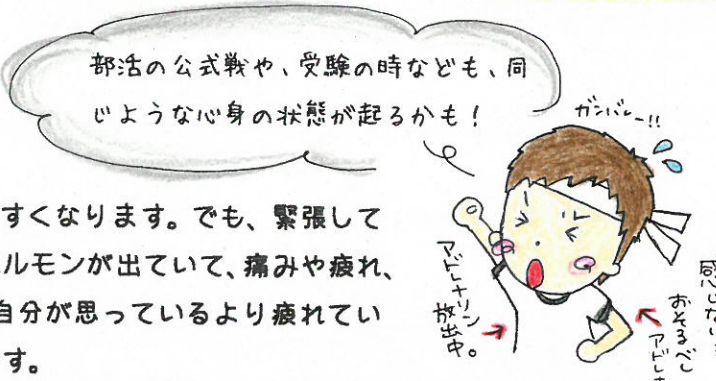 部活の公式戦や、受験の時なども、同
じような心身の状態が起るかも！
ガンバレー!!
すくなります。でも、緊張して
ルモンが出ていて、痛みや疲れ、
自分が思っているより疲れてい
す。
アドレナリン
放出中。
感じない
おそるべし
アドレナ